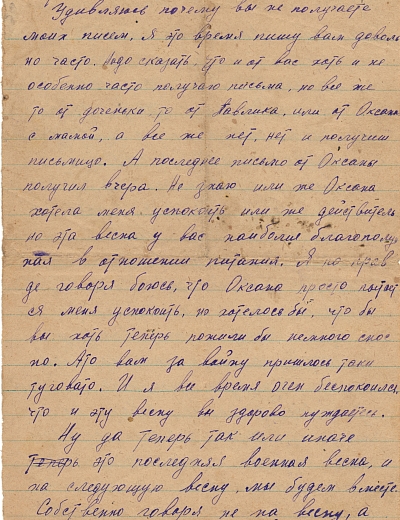 Удивляюсь почему вы не получаете
моих писем, Я это время пишу вам доволь
но часто. Надо сказать, что и от вас хоть и не
особенно часто получаю письма, но все же
то от доченьки то от Павлика, или от Оксаны
с мамой, а все же нет, нет и получиш
письмицо. А последнее письмо от Оксаны
получил вчера. Не знаю или же Оксана
хотела меня успокоить или же действитель
но эта весна у вас наиболея благополуч
ная в отношении питания. Я по прав
де говоря боюсь, что Оксана просто пытает
ся меня успокоить, но хотелось бы, что бы
вы хоть теперь пожили бы немного снос
но. Ато вам за войну пришлось таки
туговато. И я все время очен беспокоился
что и эту весну вы здорово нуждаетесь.
Ну да теперь так или иначе
теперь это последняя военная весна, и
на следующую весну, мы будем вместе.
Собственно говоря не на весну, а